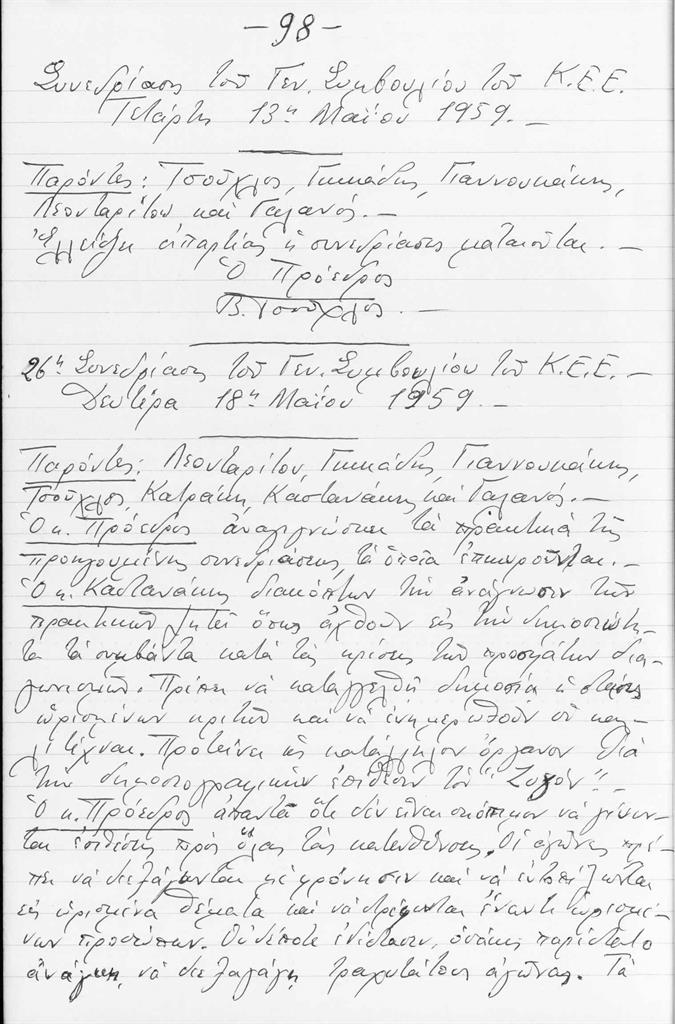 -98-
Συνεδρίασις τοῦ Γεν. Συμβουλίου τοῦ Κ.Ε.Ε.
Τετάρτης 13ης Μαΐου 1959. —
Παρόντες: Τσοῦχλος, Γκικάδης, Γιαννουκάκης,
Λεονταρίτου καὶ Γαλανός. —
Ἐλλείψει ἀπαρτίας ἡ συνεδρίασις ματαιοῦται. —
Ὁ Πρόεδρος
Β. Τσοῦχλος. —
26η Συνεδρίασις τοῦ Γεν. Συμβουλίου τοῦ Κ.Ε.Ε. —
Δευτέρα 18η Μαΐου 1959. —
Παρόντες: Λεονταρίτου, Γκικάδης, Γιαννουκάκης,
Τσοῦχλος, Κατράκη, Καστανάκης καὶ Γαλανός. —
Ὁ κ. Πρόεδρος ἀναγιγνώσκει τὰ πρακτικὰ τῆς
προηγουμένης συνεδριάσεως, τὰ ὁποῖα ἐπικυροῦνται. —
Ὁ κ. Καστανάκης διακόπτων τὴν ἀνάγνωσιν τῶν
πρακτικῶν ζητεῖ ὅπως ἀχθοῦν εἰς τὴν δημοσιότη-
τα τὰ συμβάντα κατὰ τὰς κρίσεις τῶν προσφάτων δια-
γωνισμῶν. Πρέπει νὰ καταγγελθῇ δημοσίᾳ ἡ στάσις
ὡρισμένων κριτῶν καὶ νὰ ἐνημερωθοῦν οἱ καλ-
λιτέχναι. Προτείνει ὡς κατάλληλον ὄργανον διὰ
τὴν δημοσιογραφικὴν ἐπίθεσιν τὸν "Ζυγόν". —
Ὁ κ. Πρόεδρος ἀπαντᾶ ὅτι δὲν εἶναι σκόπιμον νὰ γίνων-
ται ἐπιθέσεις πρὸς ὅλας τὰς κατευθύνσεις. Οἱ ἀγῶνες πρέ-
πει νὰ διεξάγωνται μὲ φρόνησιν καὶ νὰ ἐντοπίζωνται
εἰς ὡρισμένα θέματα καὶ νὰ στρέφωνται ἔναντι ὡρισμέ-
νων προσώπων. Οὐδέποτε ἐδίστασεν, ὁσάκις παρίστατο
ἀνάγκη, νὰ διεξαγάγῃ τραχυτάτους ἀγῶνας. Τὰ